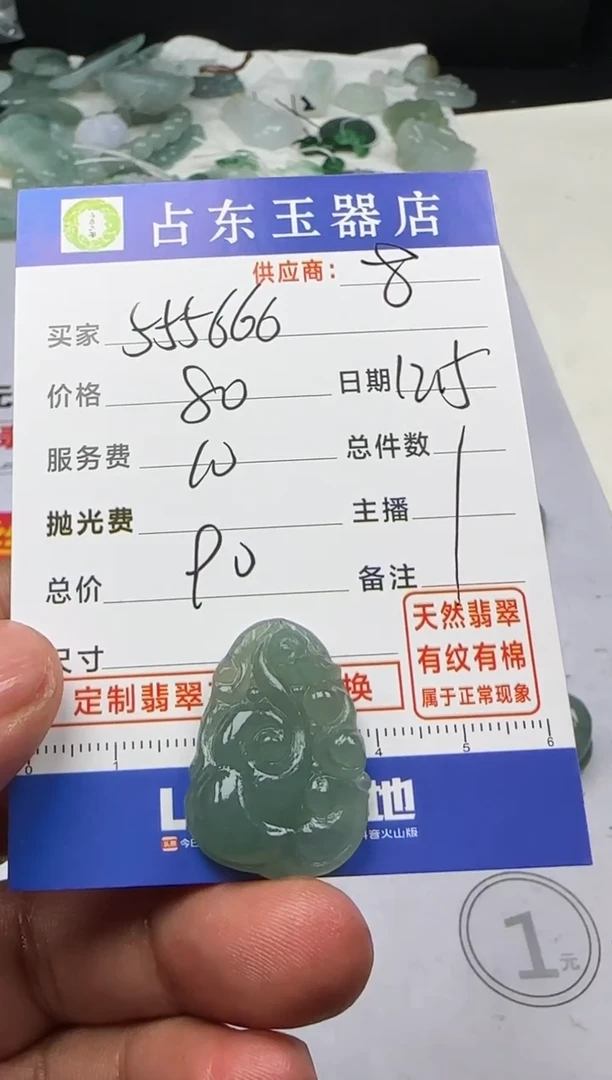 占东玉器店
供应商: 8
买家 555666
价格 80 日期 125
服务费 10 总件数 1
抛光费 主播
总价 90 备注
天然翡翠
有纹有棉
属于正常现象
尺寸
定制翡翠 换
0 1 4 5 6
地
音火山版
1元